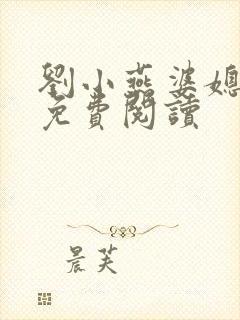 劉小燕婆媳
免費閱讀
晨芙